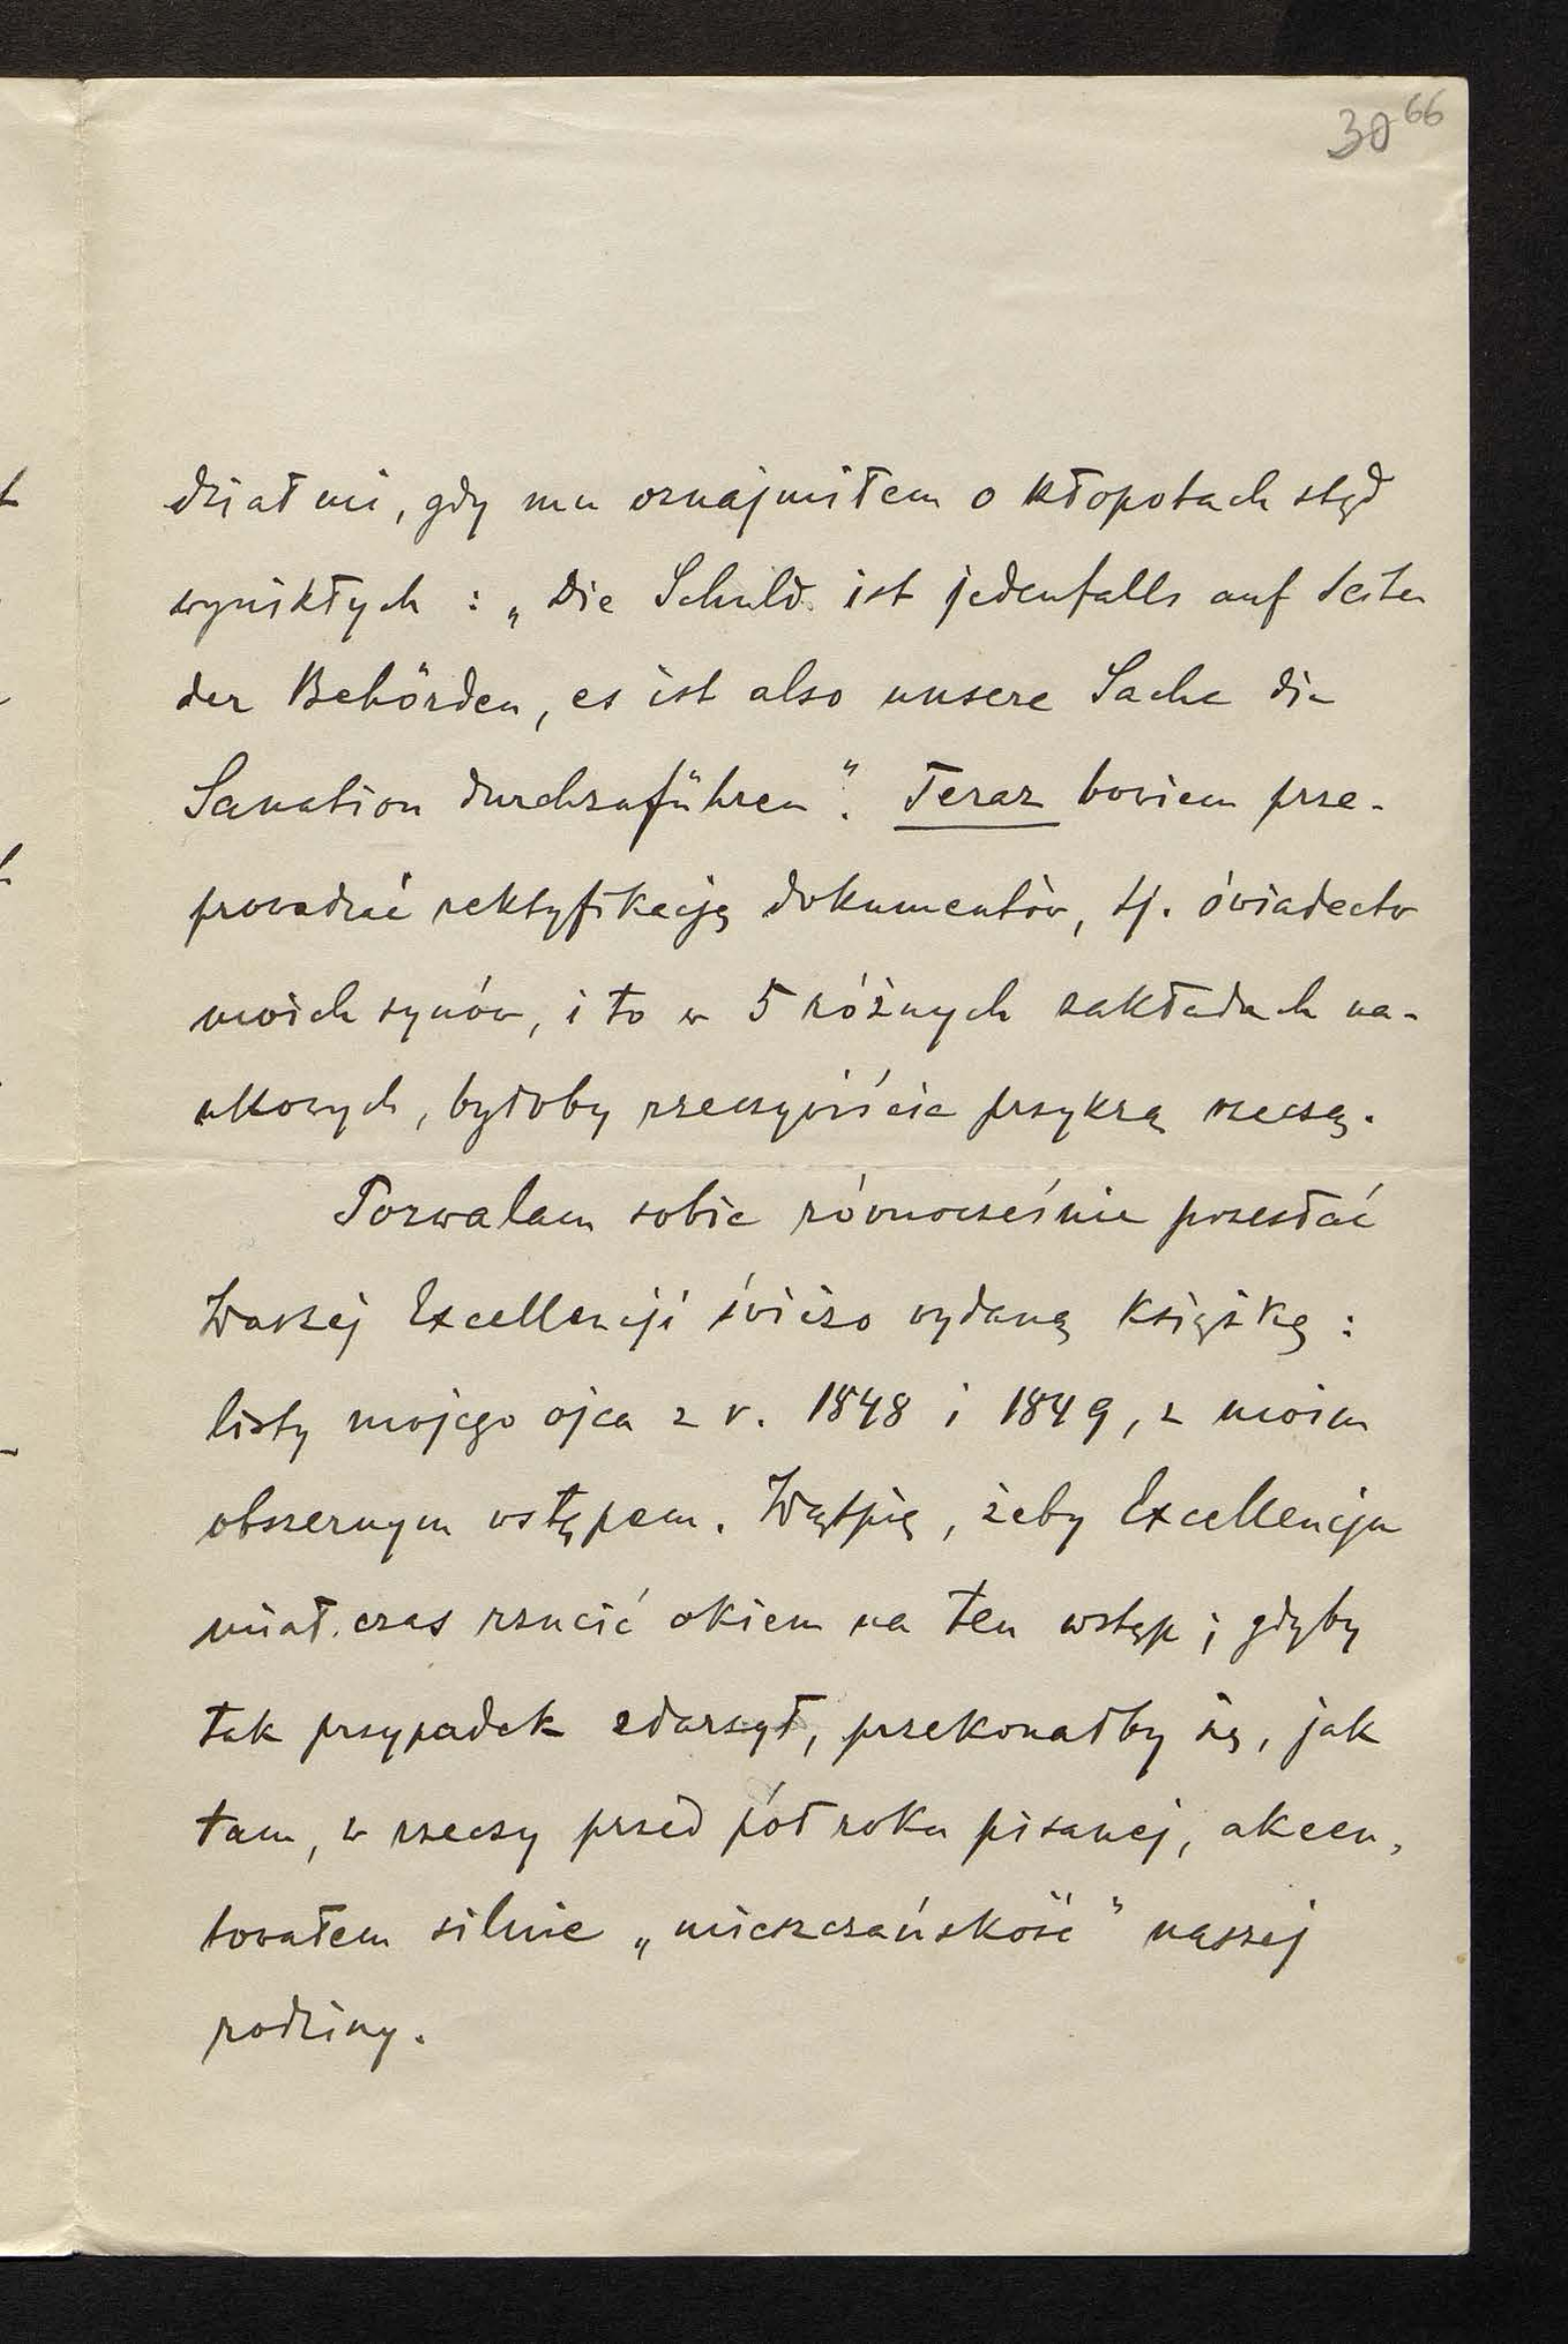 30 66
dział mi, gdy mu oznajmiłem o kłopotach stąd
wynikłych : „Die Schuld ist jedenfalls auf Seiten
der Behörden, es ist also unsere Sache die
Sanation durchzuführen". Teraz bowiem prze-
prowadzać rektyfikację dokumentów, tj. świadectw
moich synów, i to w 5 różnych zakładach na-
ukowych, byłoby rzeczywiście przykrą rzeczą.
Pozwalam sobie równocześnie przesłać
Waszej Excellencji świeżo wydaną książkę :
listy mojego ojca z r. 1848 i 1849, z moim
obszernym wstępem. Wątpię, żeby Excellencja
miał czas rzucić okiem na ten wstęp ; gdyby
tak przypadek zdarzył, przekonałby się, jak
tam, w rzeczy przed pół roku pisanej, akcen-
towałem silnie „mieszczańskość" naszej
rodziny.